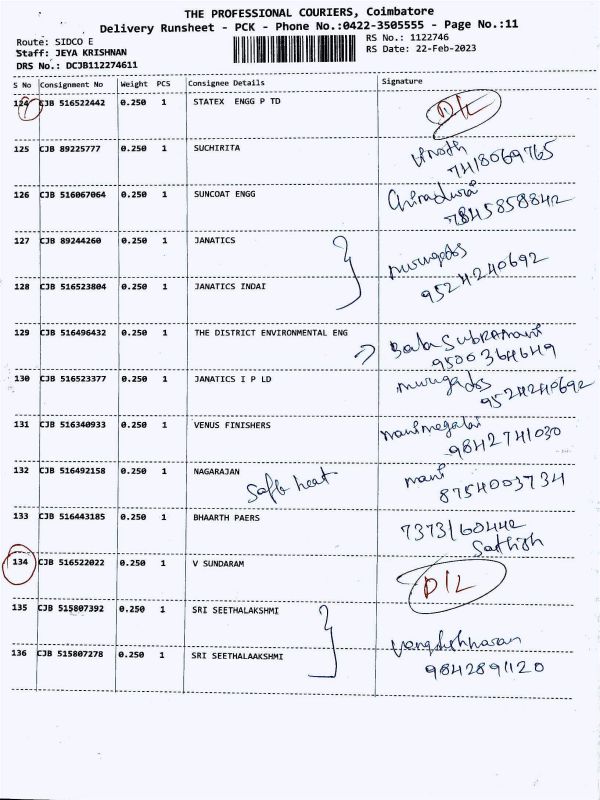 THE PROFESSIONAL COURIERS, Coimbatore
Delivery Runsheet - PCK - Phone No.:0422-3505555 - Page No.:11
Route: SIDCO E
RS No.: 1122746
Staff: JEYA KRISHNAN
RS Date: 22-Feb-2023
DRS No.: DCJB112274611
S No Consignment No Weight PCS Consignee Details Signature
124 CJB 516522442 0.250 1 STATEX ENGG P TD D/L
125 CJB 89225777 0.250 1 SUCHIRITA Vinoth
7418069765
126 CJB 516067064 0.250 1 SUNCOAT ENGG
7845858842
127 CJB 89244260 0.250 1 JANATICS murugados
9524240692
128 CJB 516523804 0.250 1 JANATICS INDAI
129 CJB 516496432 0.250 1 THE DISTRICT ENVIRONMENTAL ENG BalaSubRamani
9500364649
130 CJB 516523377 0.250 1 JANATICS I P LD murugados
9524240692
131 CJB 516340933 0.250 1 VENUS FINISHERS manimegalai
9842741030
132 CJB 516492158 0.250 1 NAGARAJAN Safe heat mani
8754003734
133 CJB 516443185 0.250 1 BHAARTH PAERS 7373160442
Sathish
134 CJB 516522022 0.250 1 V SUNDARAM D/L
135 CJB 515807392 0.250 1 SRI SEETHALAKSHMI
136 CJB 515807278 0.250 1 SRI SEETHALAAKSHMI
9842891120